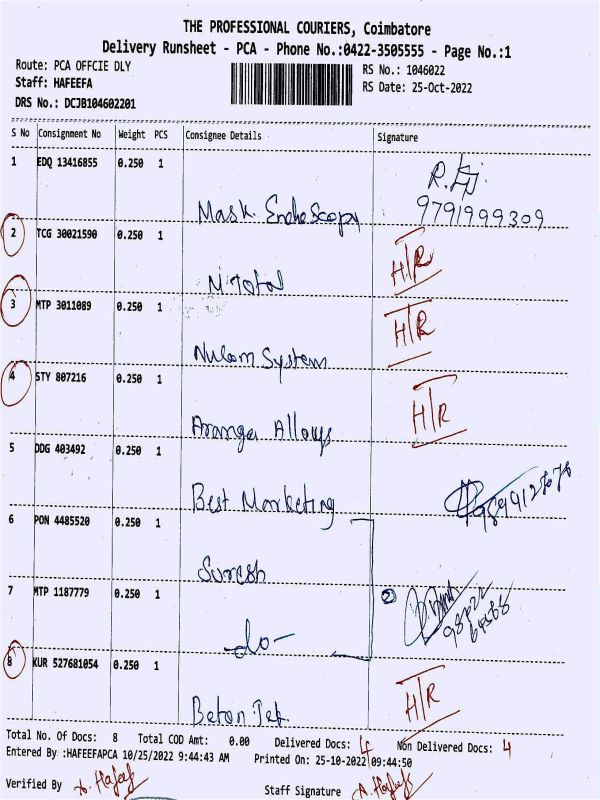 THE PROFESSIONAL COURIERS, Coimbatore
Delivery Runsheet - PCA - Phone No.:0422-3505555 - Page No.:1
Route: PCA OFFCIE DLY RS No.: 1046022
Staff: HAFEEFA RS Date: 25-Oct-2022
DRS No.: DCJB104602201
S No Consignment No Weight PCS Consignee Details Signature
1 EDQ 13416855 0.250 1
Mask Endo Scopy 9791999309
2 TCG 30021590 0.250 1 H/R
M Total
3 MTP 3011089 0.250 1 H/R
System
4 STY 807216 0.250 1 H/R
Alloys
5 DDG 403492 0.250 1
Best Marketing
6 PON 4485520 0.250 1
Suresh
7 MTP 1187779 0.250 1 2
-do-
8 KUR 527681054 0.250 1 H/R
Total No. Of Docs: 8 Total COD Amt: 0.00 Delivered Docs: 4 Non Delivered Docs: 4
Entered By :HAFEEFAPCA 10/25/2022 9:44:43 AM Printed On: 25-10-2022 09:44:50
Verified By A. Hafeef Staff Signature A. Hafeef